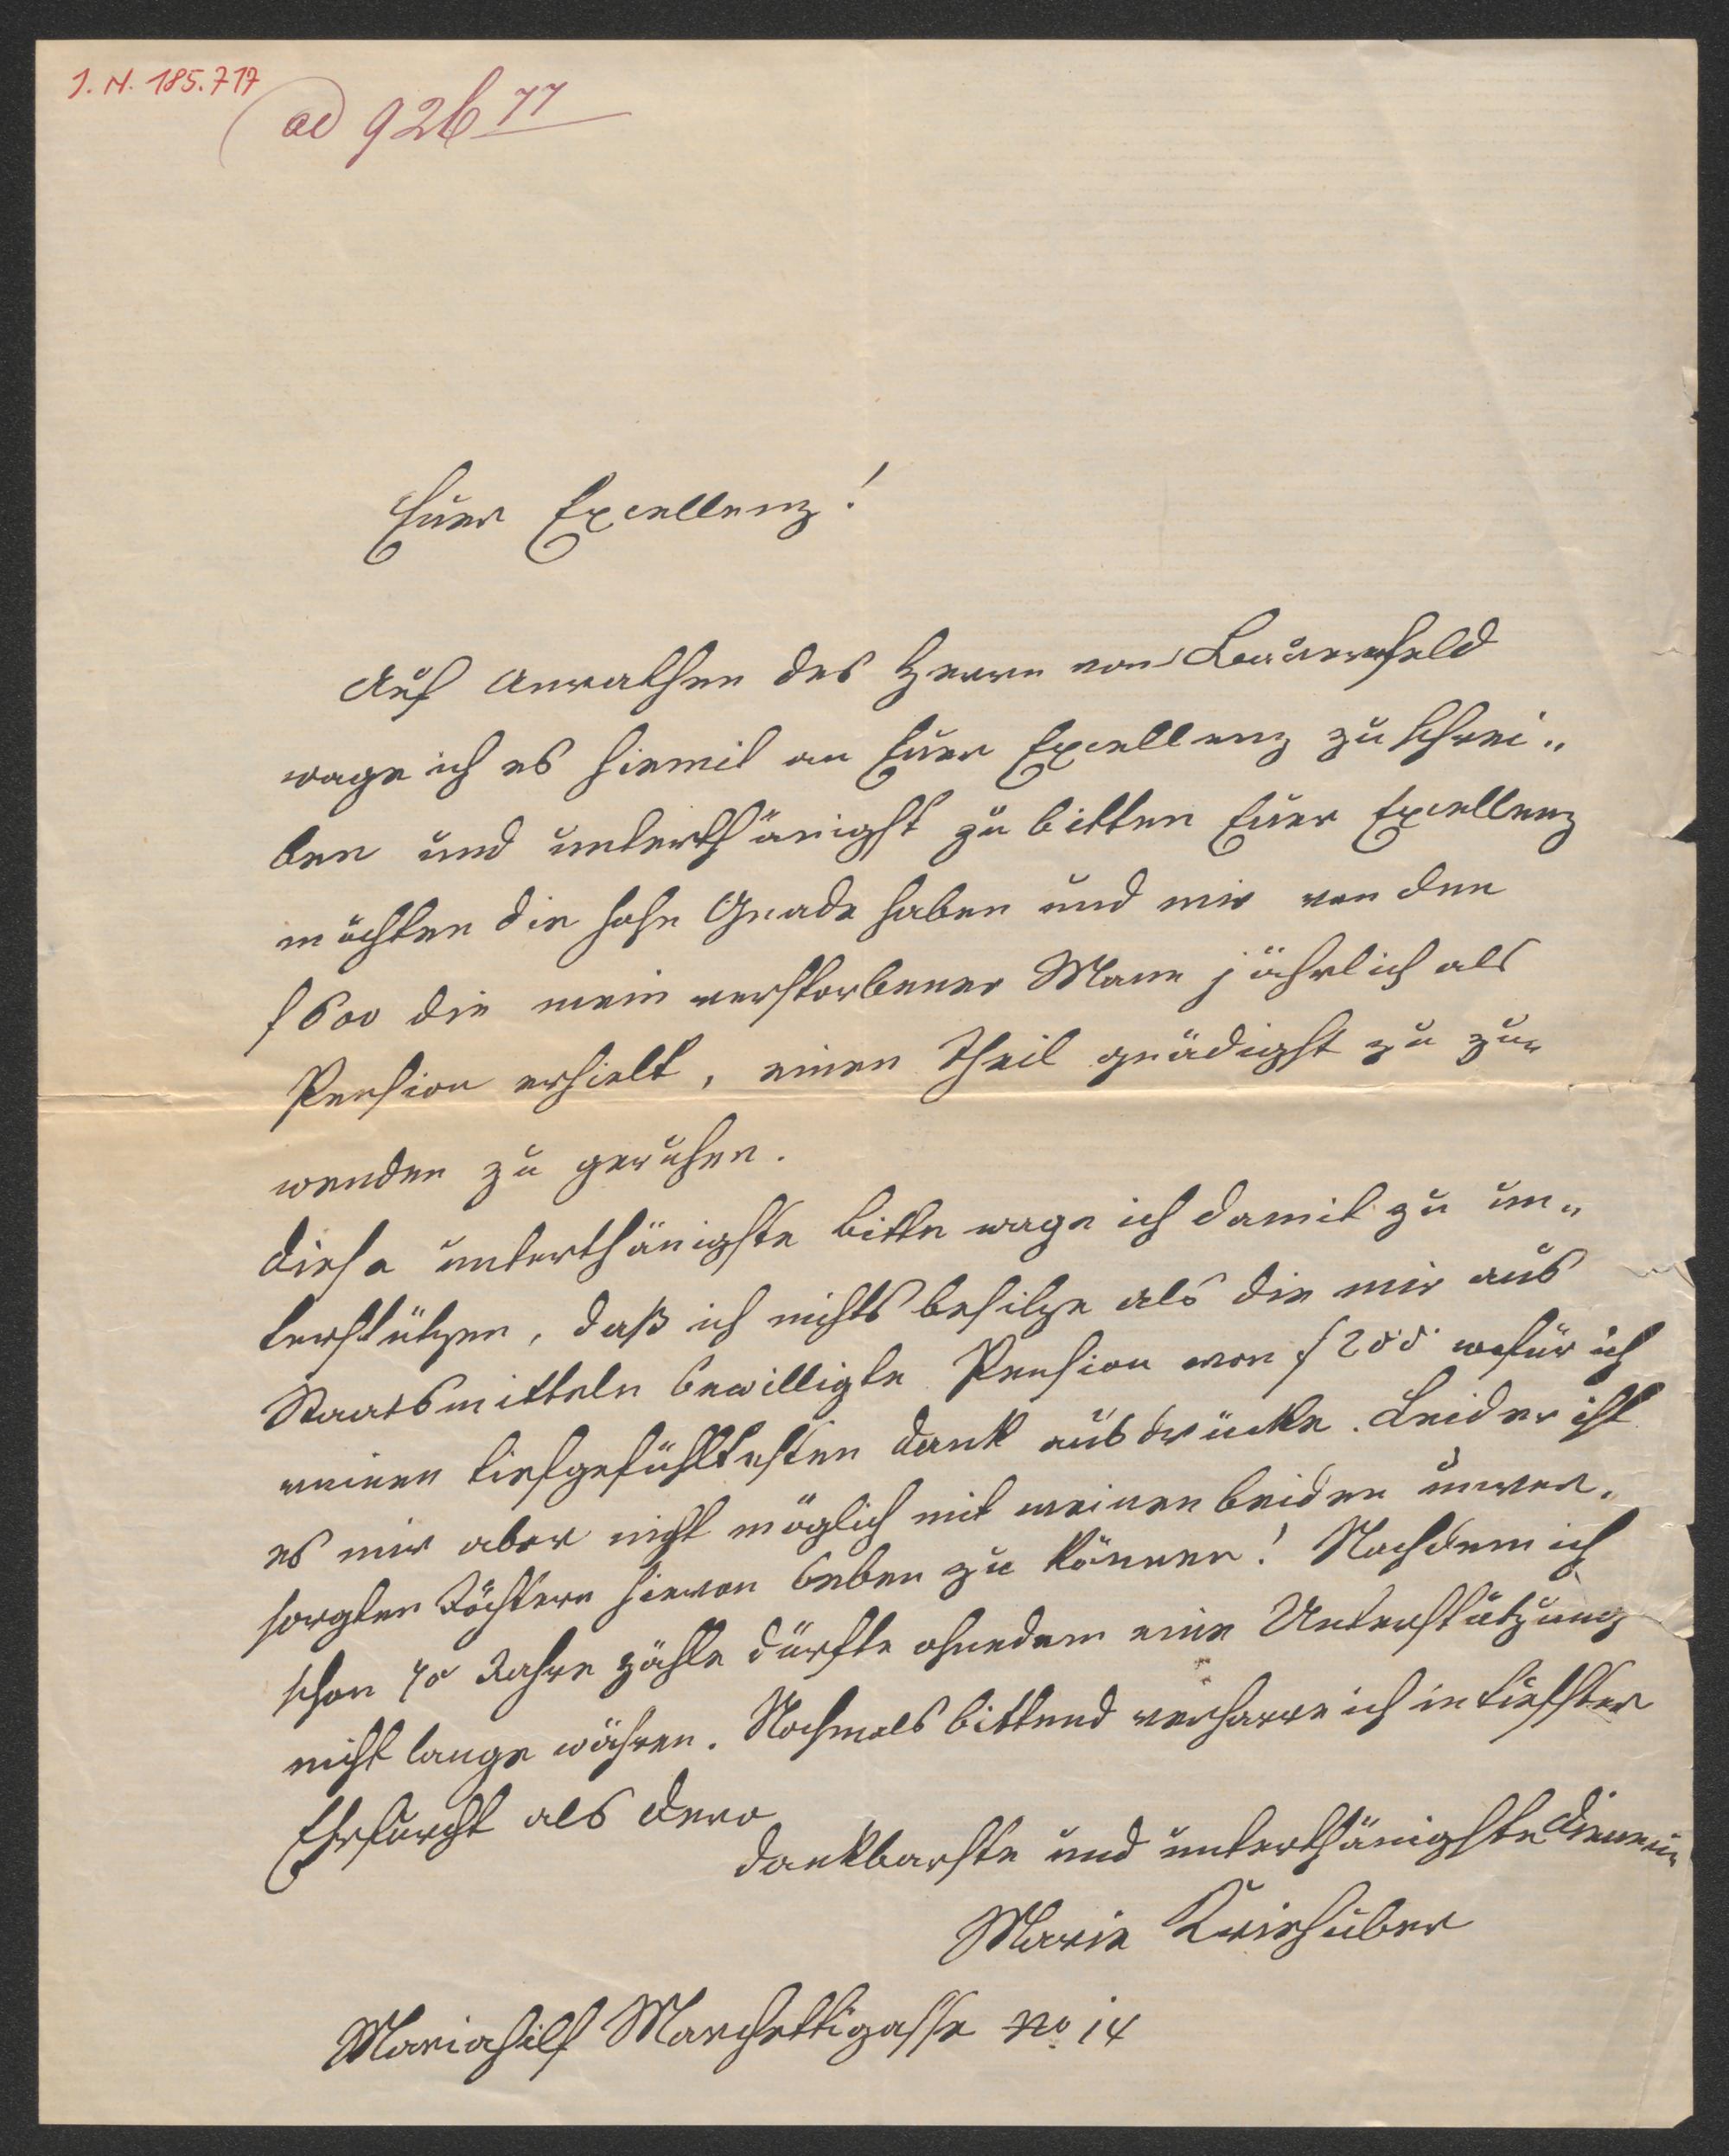 J. N. 185.717
ad 926 77
Euer Excellenz!
Auf Anrathen des Herrn von Bauernfeld
wage ich es hiemit an Euer Excellenz zu schrei„
ben und unterthänigst zu bitten Euer Excellenz
möchten die hohe Gnade haben und mir von den
f 600 die mein verstorbener Mann jährlich als
Pension erhielt, einen Theil gnädigst zu zu„
wenden zu geruhen.
Diese unterthänigste Bitte wage ich damit zu un„
terstützen, daß ich nichts besitze als die mir aus
Staatsmitteln bewilligte Pension von f 200 wofür ich
meinen tiefgefühltesten Dank ausdrücke. Leider ist
es mir aber nicht möglich mit meinen beiden unver„
sorgten Töchtern hievon leben zu können! Nachdem ich
schon 70 Jahre zähle dürfte ohnedem eine Unterstützung
nicht lange währen. Nochmals bittend verharre ich in tiefster
Ehrfurcht als dero
dankbarste und unterthänigste Dienerin
Marie Kriehuber
Mariahilf Marchettigasse No 14